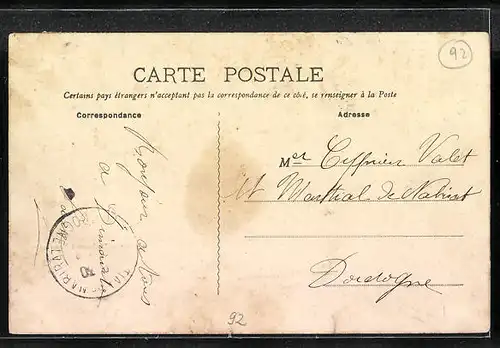 92
CARTE POSTALE
Certains pays étrangers n'acceptant pas la correspondance de ce côté, se renseigner à la Poste
Correspondance
Adresse
Bonjour a tous
a Dimanche
Mer Cyprien Valet
St Martial de Nabirat
Dordogne
92